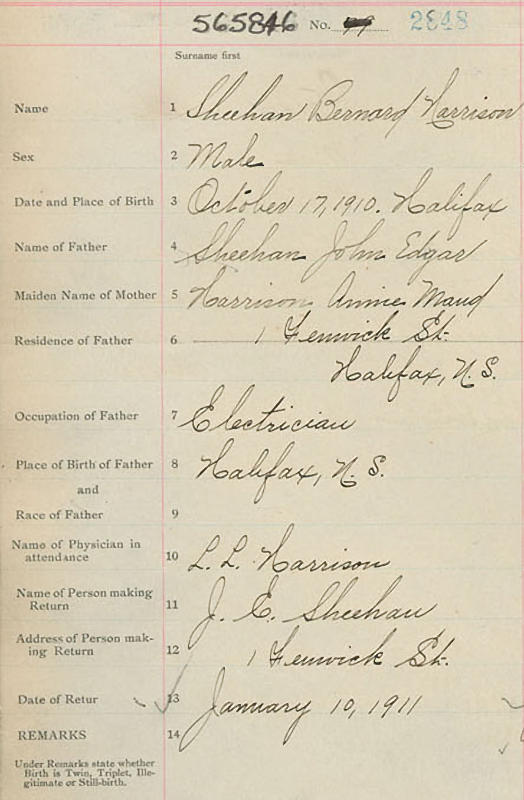 565846 No. 2848
Surname first
Name 1 Sheehan Bernard Harrison
Sex 2 Male
Date and Place of Birth 3 October 17, 1910. Halifax
Name of Father 4 Sheehan John Edgar
Maiden Name of Mother 5 Harrison Annie Maud
Residence of Father 6 1 Fenwick St.
Halifax, N.S.
Occupation of Father 7 Electrician
Place of Birth of Father 8 Halifax, N.S.
and
Race of Father 9
Name of Physician in
attendance 10 L. L. Harrison
Name of Person making
Return 11 J. E. Sheehan
Address of Person mak-
ing Return 12 1 Fenwick St.
Date of Retur 13 January 10, 1911
REMARKS 14
Under Remarks state whether
Birth is Twin, Triplet, Ille-
gitimate or Still-birth.